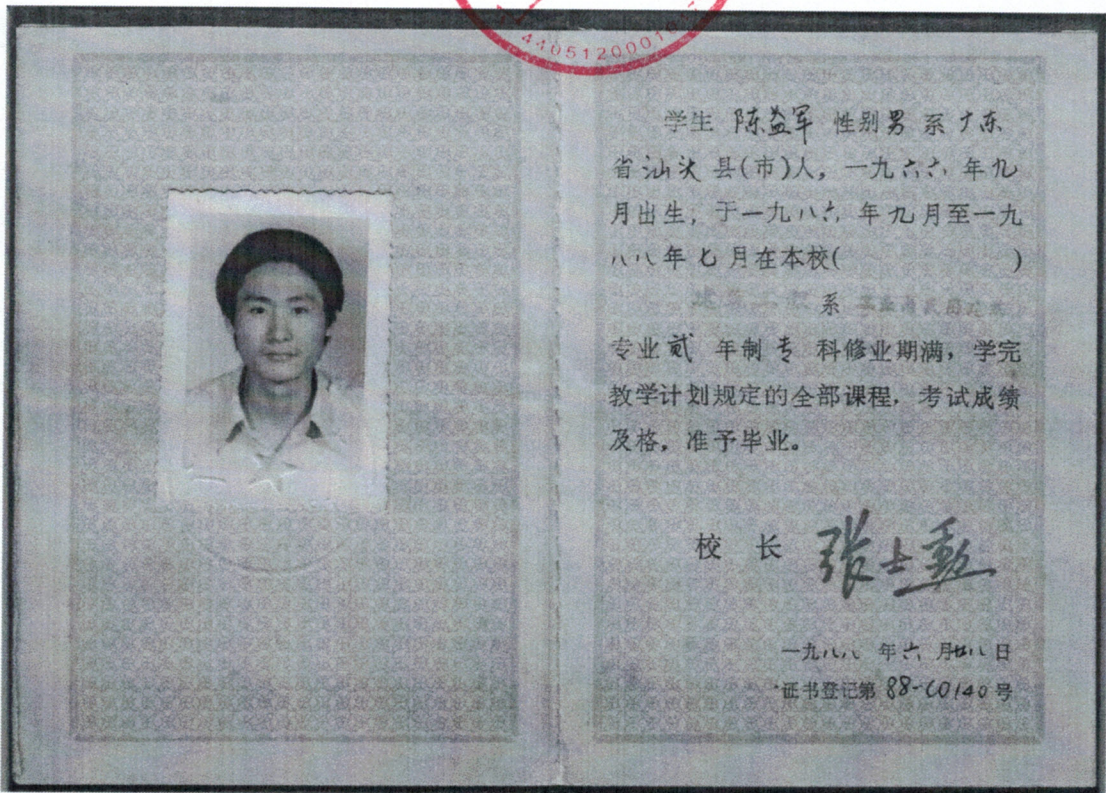 4405120001017
学生 陈益军 性别男 系广东
省汕头县(市)人，一九六六年九
月出生，于一九八六年九月至一九
八八年七月在本校( )
建筑工程系 工业与民用建筑
专业贰年制专科修业期满，学完
教学计划规定的全部课程，考试成绩
及格，准予毕业。
校长 张士勤
一九八八年六月廿八日
证书登记第88-C0140号